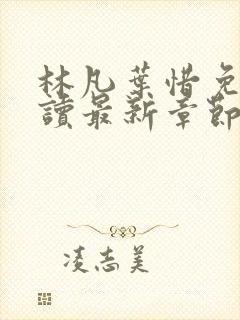 林凡葉惜免
讀最新章節
凌志美